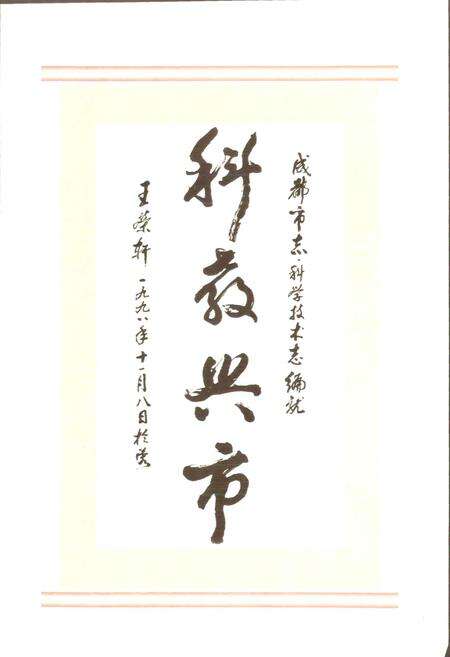 成都市志·科学技术志 编就
科教兴市
王荣轩 一九九八年十一月八日於蓉